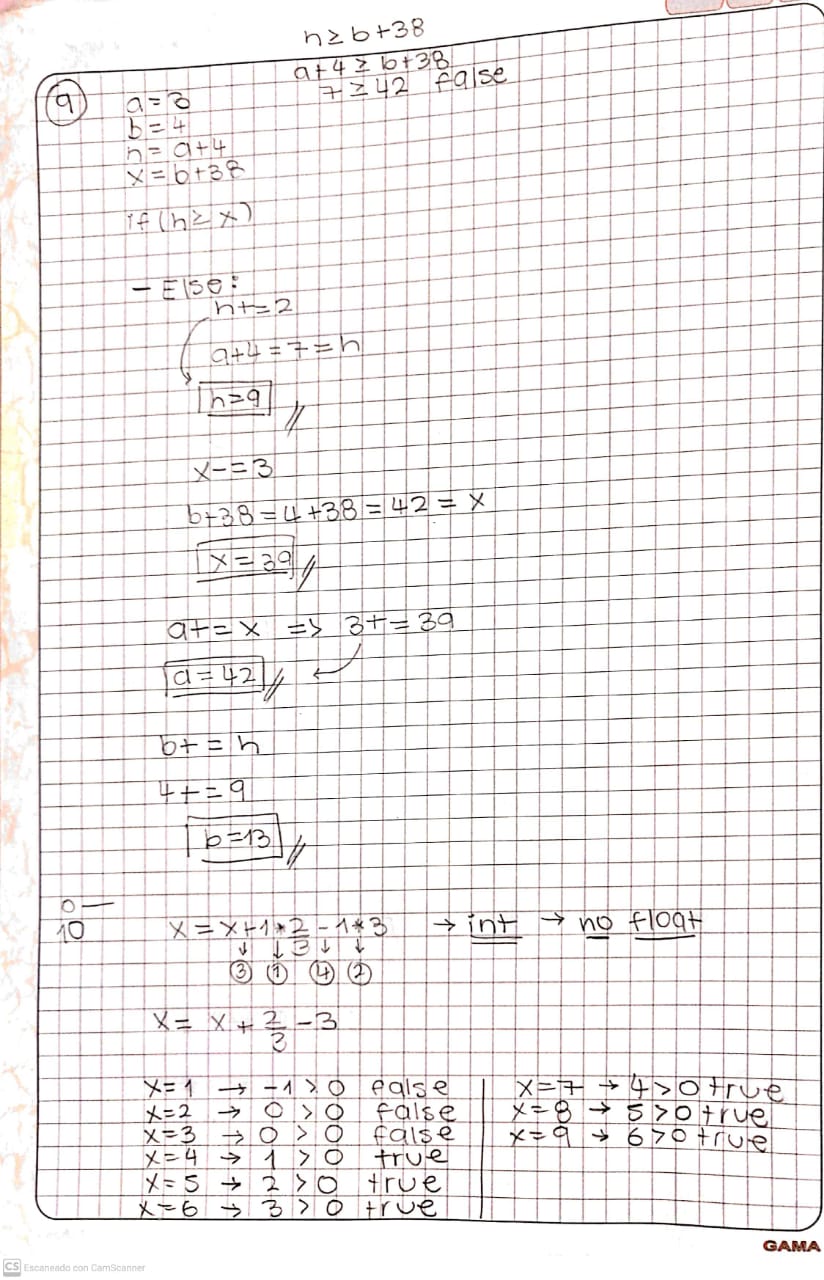 n≥b+38
a+4≥b+38
7≥42 false
9
a=3
b=4
n=a+4
x=b+38
if(n≥x)
- Else:
n+=2
a+4=7=n
n=9
x-=3
b+38=4+38=42=x
x=39
a+=x => 3+=39
a=42
b+=n
4+=9
b=13
0—
10
x=x+1*2/3-1*3 → int → no float
↓ ↓ ↓ ↓
③ ① ④ ②
x= x+2/3-3
x=1 → -1>0 false
x=2 → 0>0 false
x=3 → 0>0 false
x=4 → 1>0 true
x=5 → 2>0 true
x=6 → 3>0 true
x=7 → 4>0 true
x=8 → 5>0 true
x=9 → 6>0 true
GAMA
CS Escaneado con CamScanner